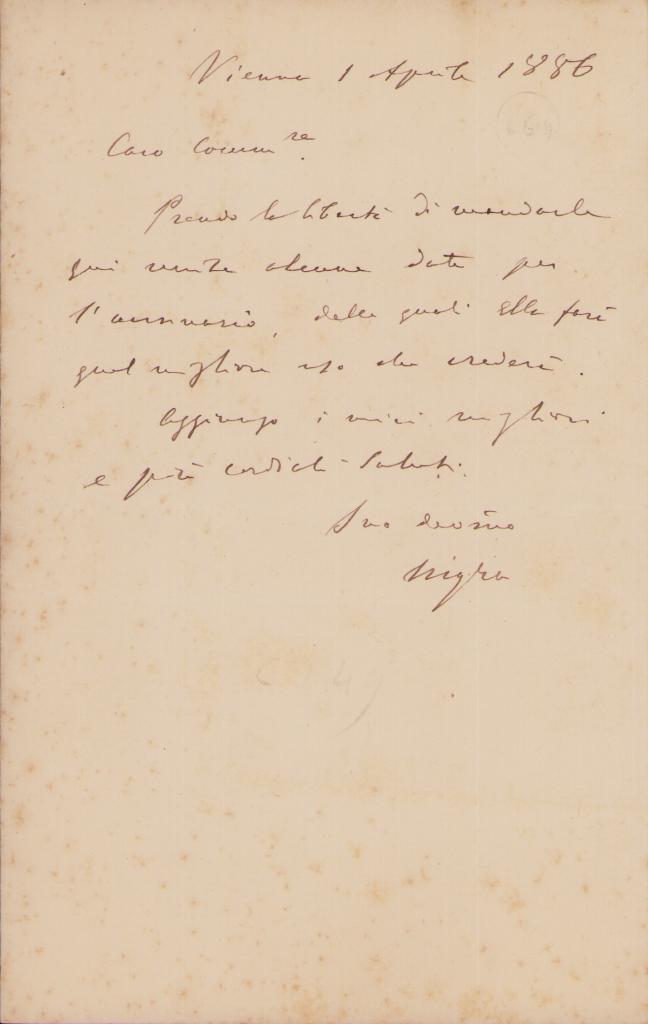 Vienna 1 Aprile 1886
Caro Comm.re
Prendo la libertà di mandarle
qui unite alcune date per
l'annuario, delle quali Ella farà
quel migliore uso che crederà.
Aggiungo i miei migliori
e più cordiali saluti.
Suo devmo
Nigra